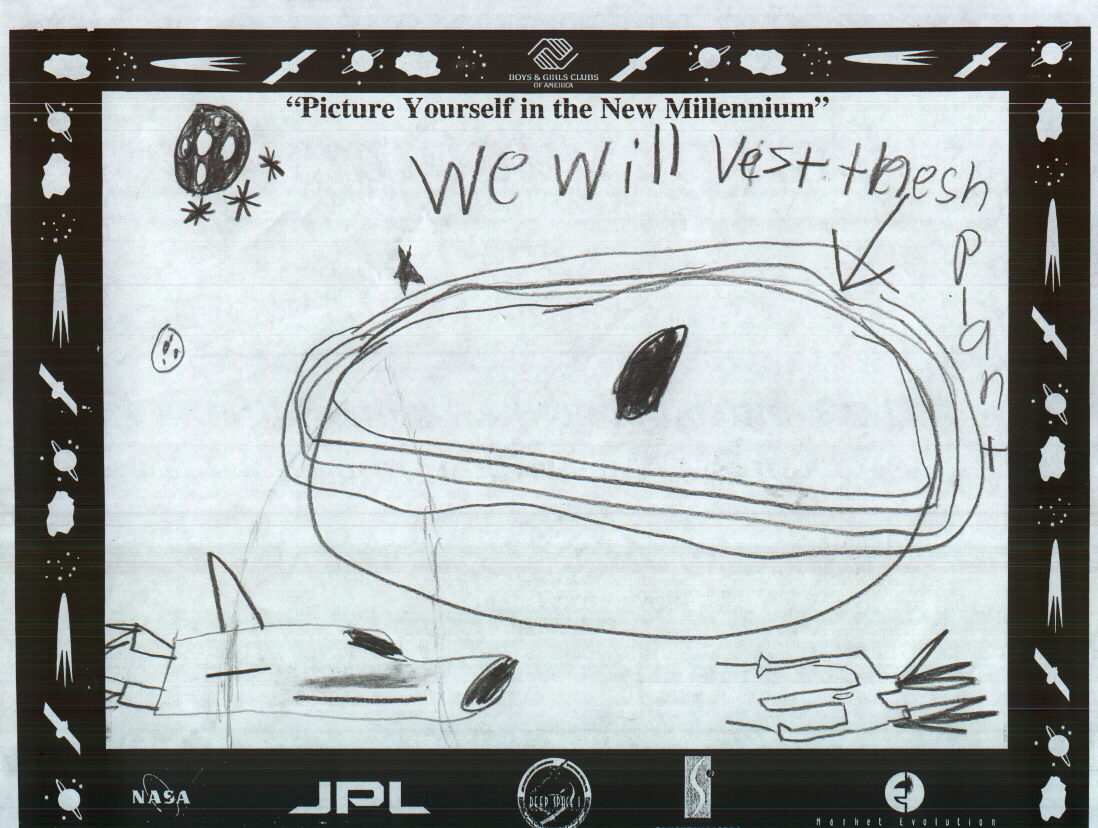 BOYS & GIRLS CLUBS
OF AMERICA
“Picture Yourself in the New Millennium”
We Will Vest thesh
plant
NASA
JPL
DEEP SPACE 1
Market Evolution